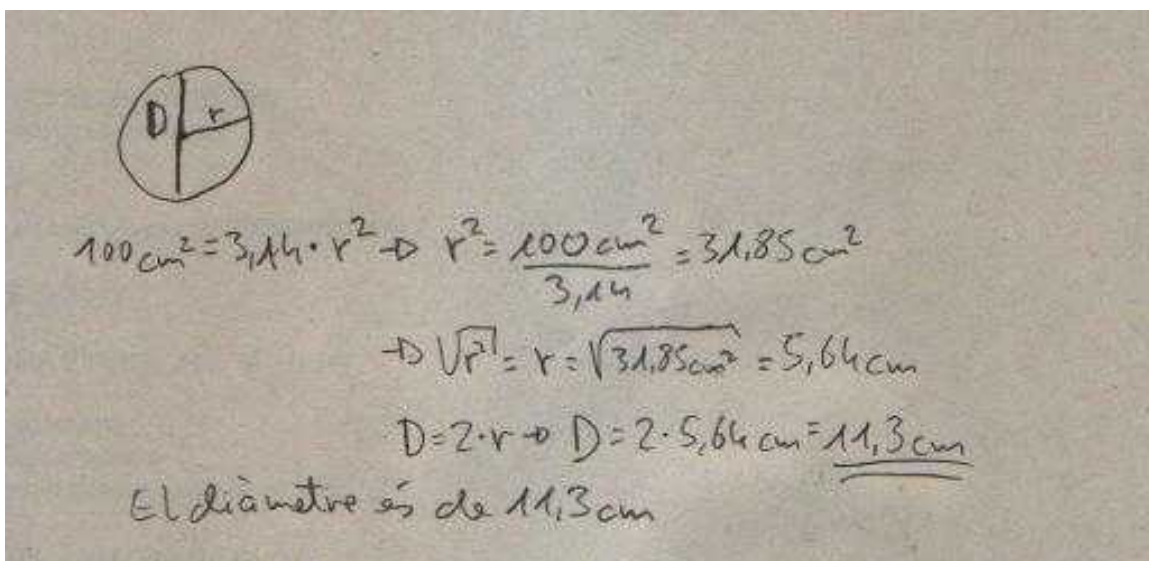 D r
100 cm² = 3,14 · r² → r² = 100 cm² / 3,14 = 31,85 cm²
→ √r² = r = √31,85cm² = 5,64 cm
D = 2 · r → D = 2 · 5,64 cm = 11,3 cm
El diàmetre és de 11,3 cm